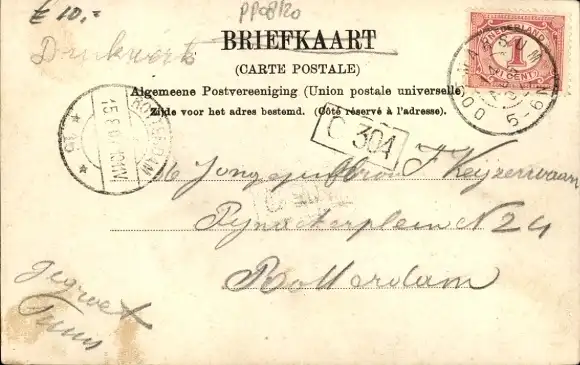 € 10,- PP08120
Drukwerk
BRIEFKAART
(CARTE POSTALE)
Algemeene Postvereeniging (Union postale universelle)
Zijde voor het adres bestemd. (Côté réservé à l'adresse).
NEDERLAND
1
CENT
5-6N
ROTTERDAM
C 304
Jongejufvrouw F Keijzerwaard
Pijnackerplein N 24
Rotterdam
Gegroet